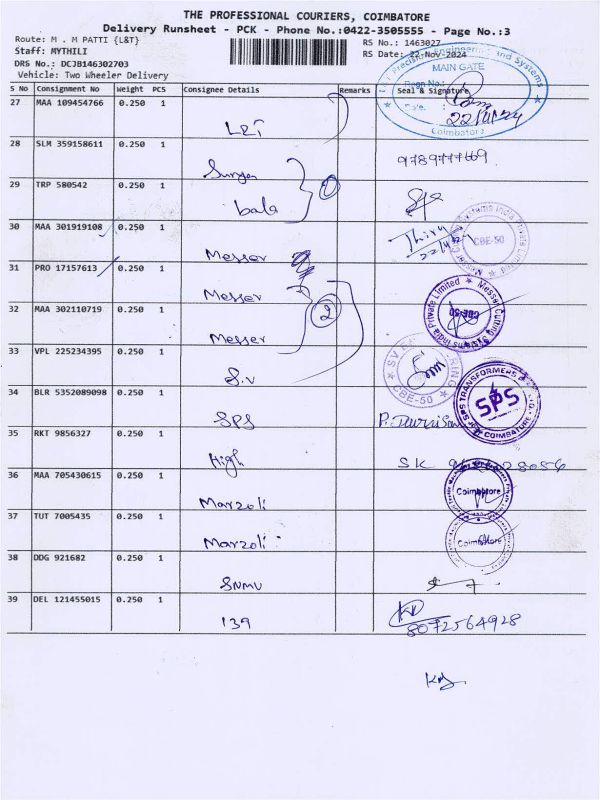 THE PROFESSIONAL COURIERS, COIMBATORE
Delivery Runsheet - PCK - Phone No.:0422-3505555 - Page No.:3
Route: M . M PATTI {L&T}
RS No.: 1463027
Staff: MYTHILI
RS Date: 22-Nov-2024
DRS No.: DCJB146302703
Vehicle: Two Wheeler Delivery
MAIN GATE
Coimbatore
S No Consignment No Weight PCS Consignee Details Remarks Seal & Signature
22/11/24
27 MAA 109454766 0.250 1
L&T
28 SLM 359158611 0.250 1
Surya
29 TRP 580542 0.250 1
bala
30 MAA 301919108 0.250 1
Messer
CBE-50
31 PRO 17157613 0.250 1
Messer
32 MAA 302110719 0.250 1
Messer 2
Messer Cutting Systems India Private Limited
CBE-50
33 VPL 225234395 0.250 1
S.V
CBE-50
34 BLR 5352089098 0.250 1
SPS
SPS
35 RKT 9856327 0.250 1
High
SK
36 MAA 705430615 0.250 1
Marzoli
Coimbatore
37 TUT 7005435 0.250 1
Marzoli
Coimbatore
38 DDG 921682 0.250 1
SNMV
39 DEL 121455015 0.250 1
139
8072564928